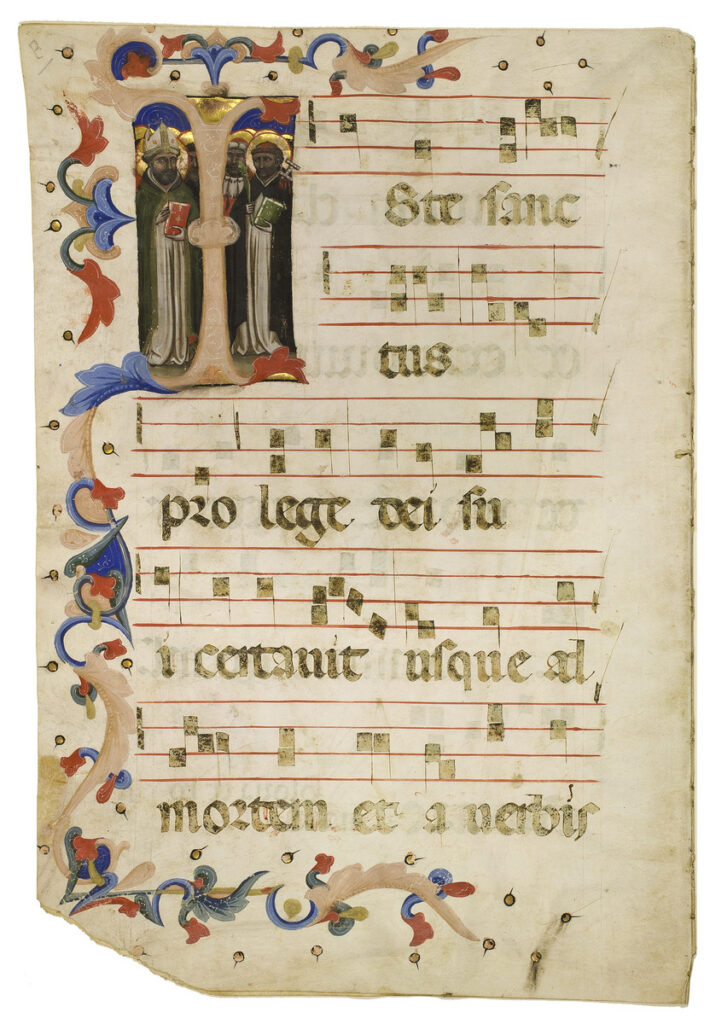 ISte sanc
tus
pro lege dei su
i certauit usque al
mortem et a uerbis